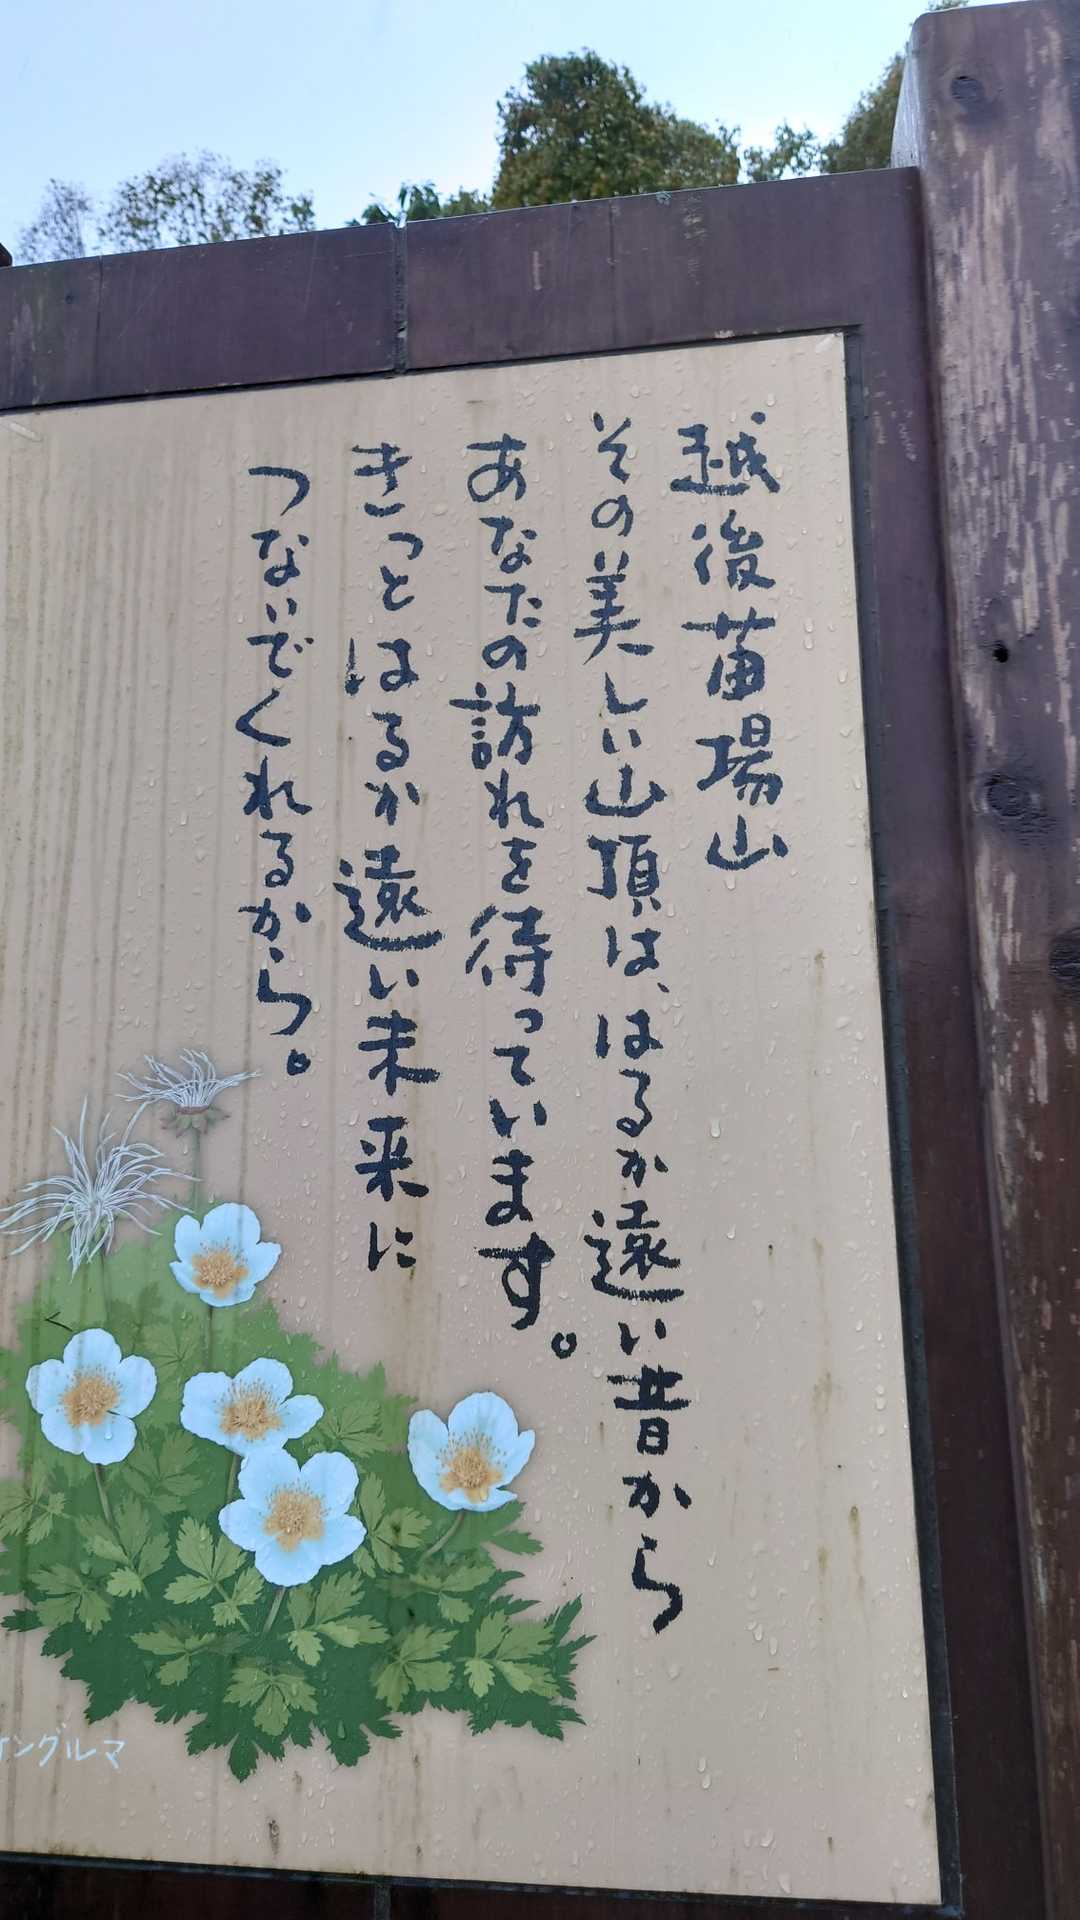 越後苗場山
その美しい山頂は、はるか遠い昔から
あなたの訪れを待っています。
きっとはるか遠い未来に
つないでくれるから。
イングルマ